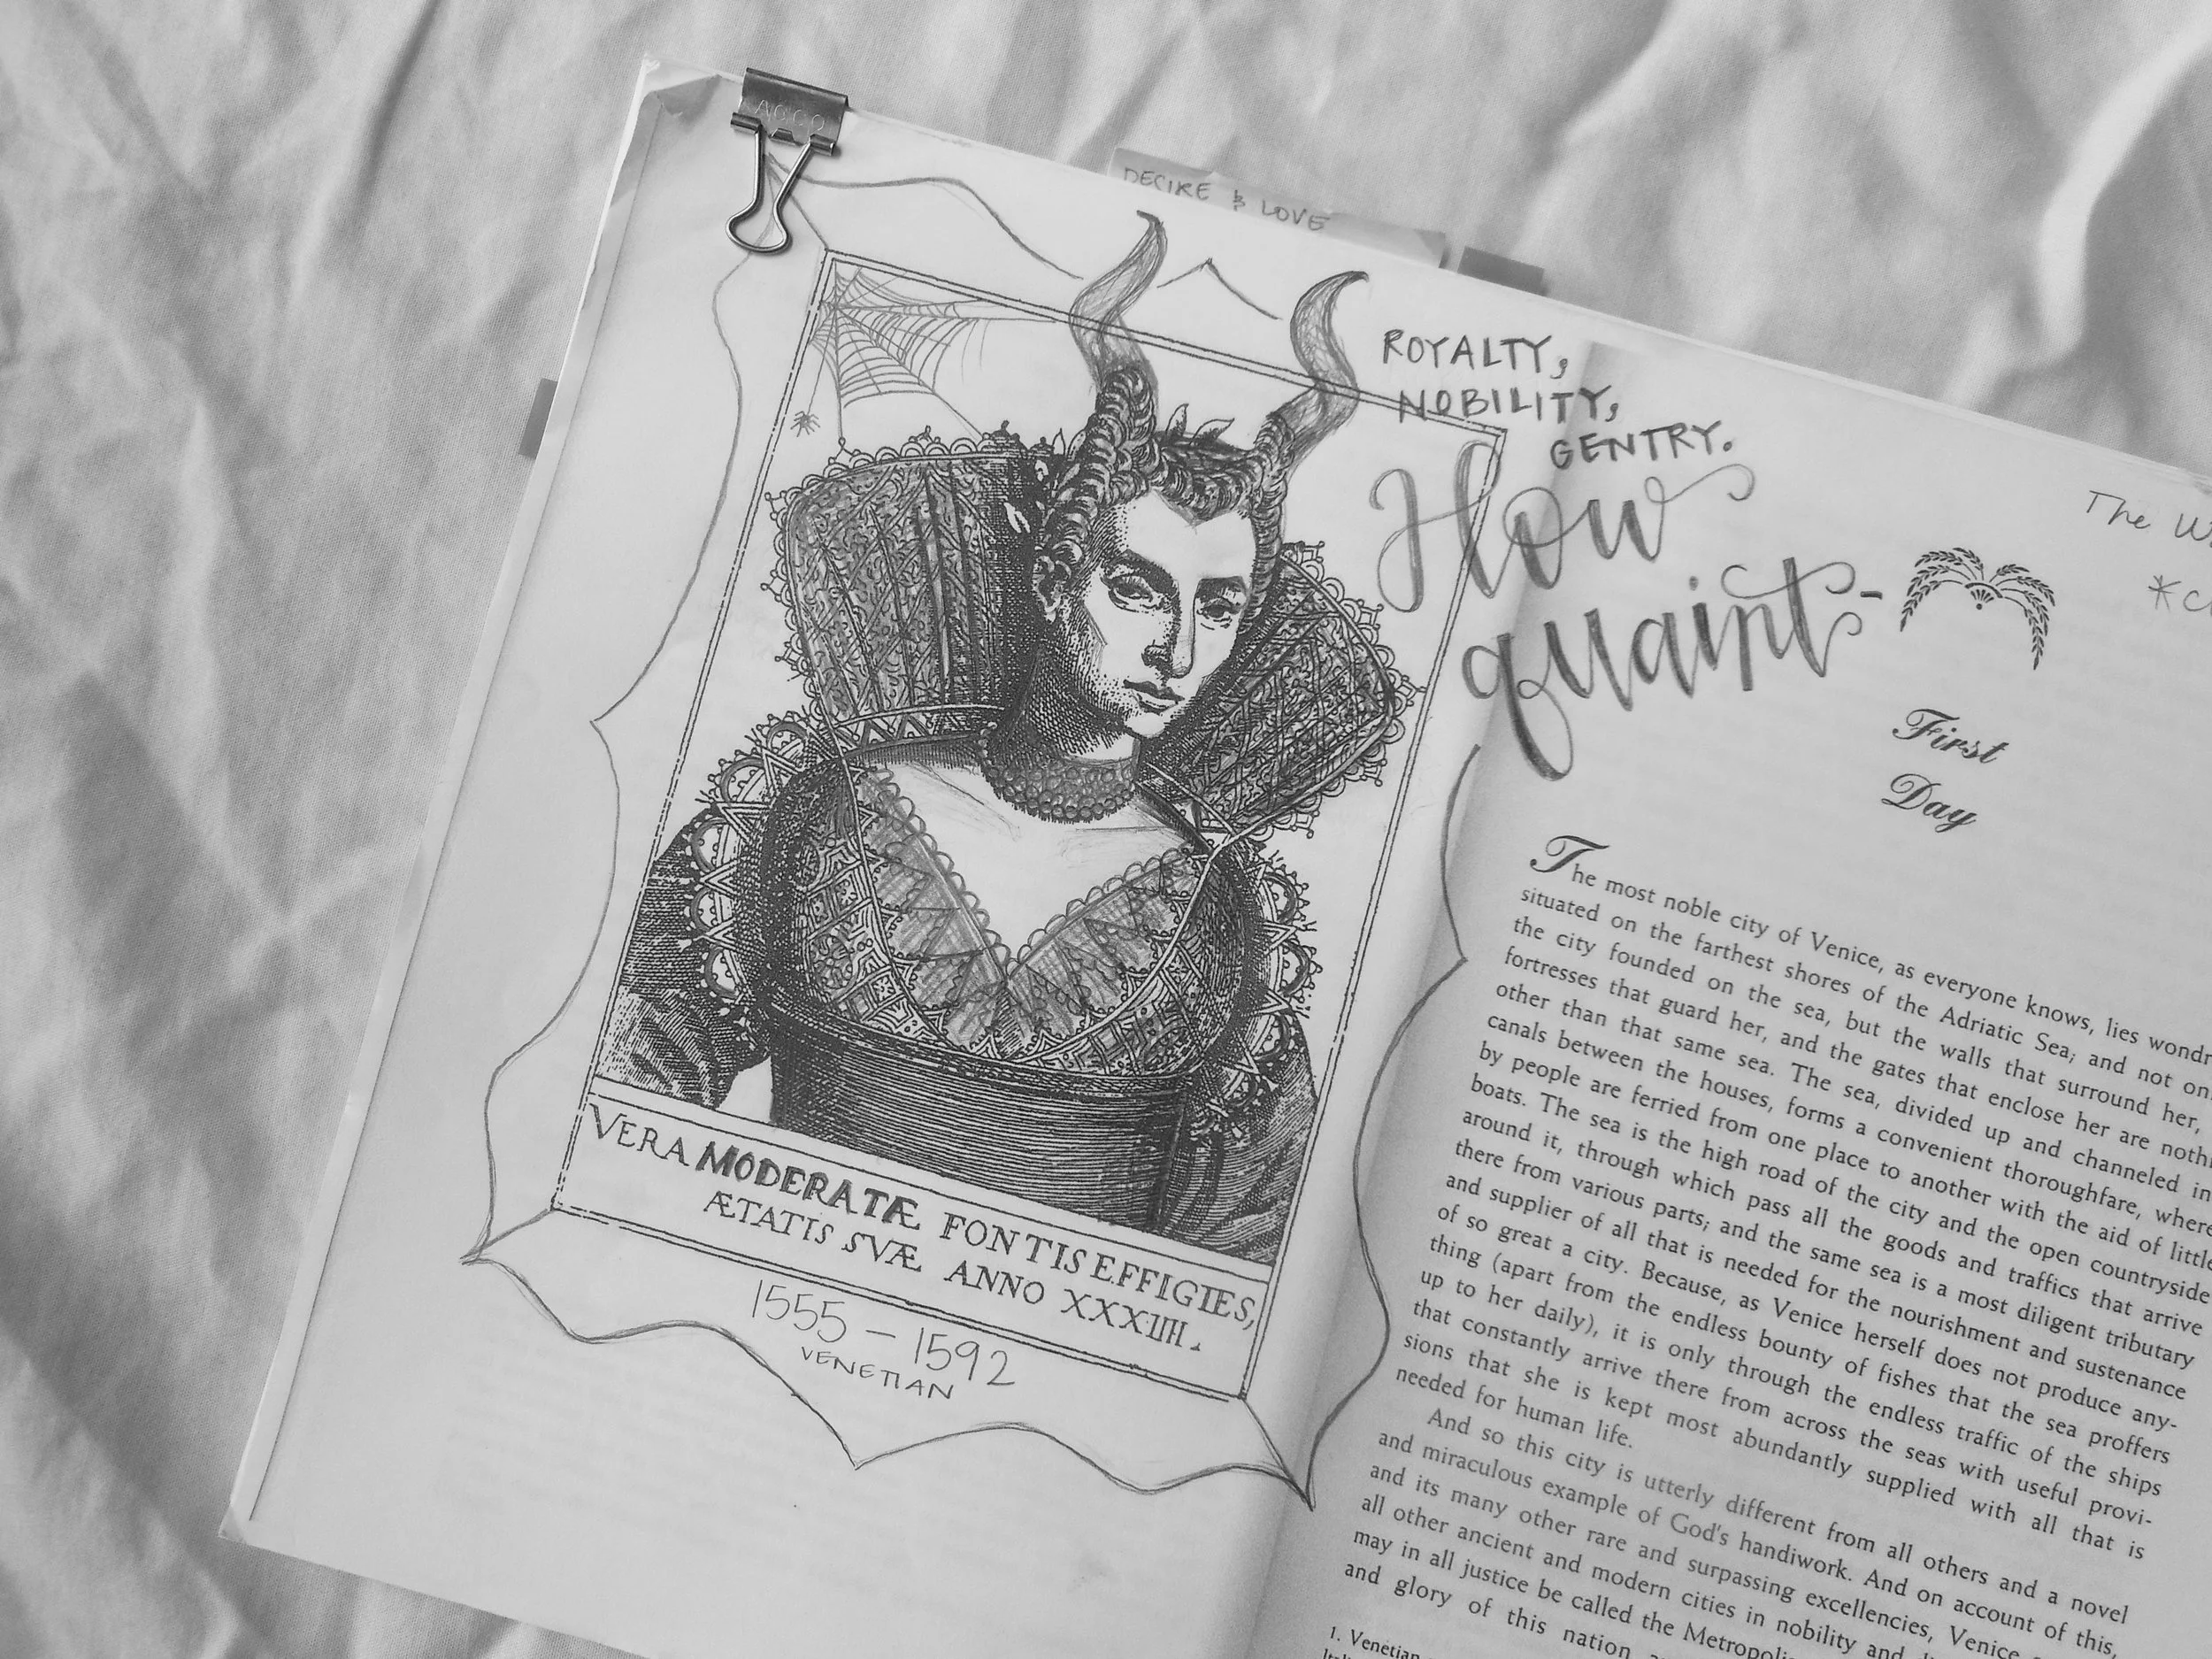 ACCO
DECIRE & LOVE
ROYALTY,
NOBILITY,
GENTRY.
How
quaint-
VERA MODERATÆ FONTIS EFFIGIES,
ÆTATIS SVÆ ANNO XXXIIII.
1555 - 1592
VENETIAN
The
First
Day
The most noble city of Venice, as everyone knows, lies
situated on the farthest shores of the Adriatic Sea; and not
the city founded on the sea, but the walls that surround her,
fortresses that guard her, and the gates that enclose her are
other than that same sea. The sea, divided up and channeled
canals between the houses, forms a convenient thoroughfare,
by people are ferried from one place to another with the aid of
boats. The sea is the high road of the city and the open countryside
around it, through which pass all the goods and traffics that arrive
there from various parts; and the same sea is a most diligent tributary
and supplier of all that is needed for the nourishment and sustenance
of so great a city. Because, as Venice herself does not produce any-
thing (apart from the endless bounty of fishes that the sea proffers
up to her daily), it is only through the endless traffic of the ships
that constantly arrive there from across the seas with useful provi-
sions that she is kept most abundantly supplied with all that is
needed for human life.
And so this city is utterly different from all others and a novel
and miraculous example of God's handiwork. And on account of this,
and its many other rare and surpassing excellencies, Venice
all other ancient and modern cities in nobility and
may in all justice be called the
and glory of this nation
1. Venetian